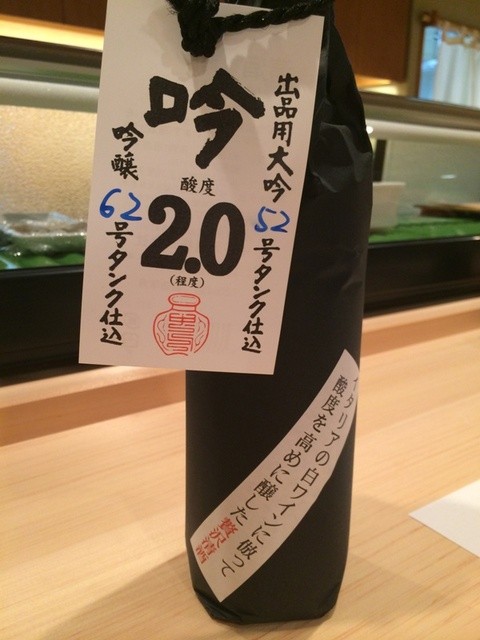 出品用大吟
52号タンク仕込
吟
酸度
2.0
(程度)
吟醸
62号タンク仕込
イタリアの白ワインに倣って
酸度を高めに醸した贅沢清酒